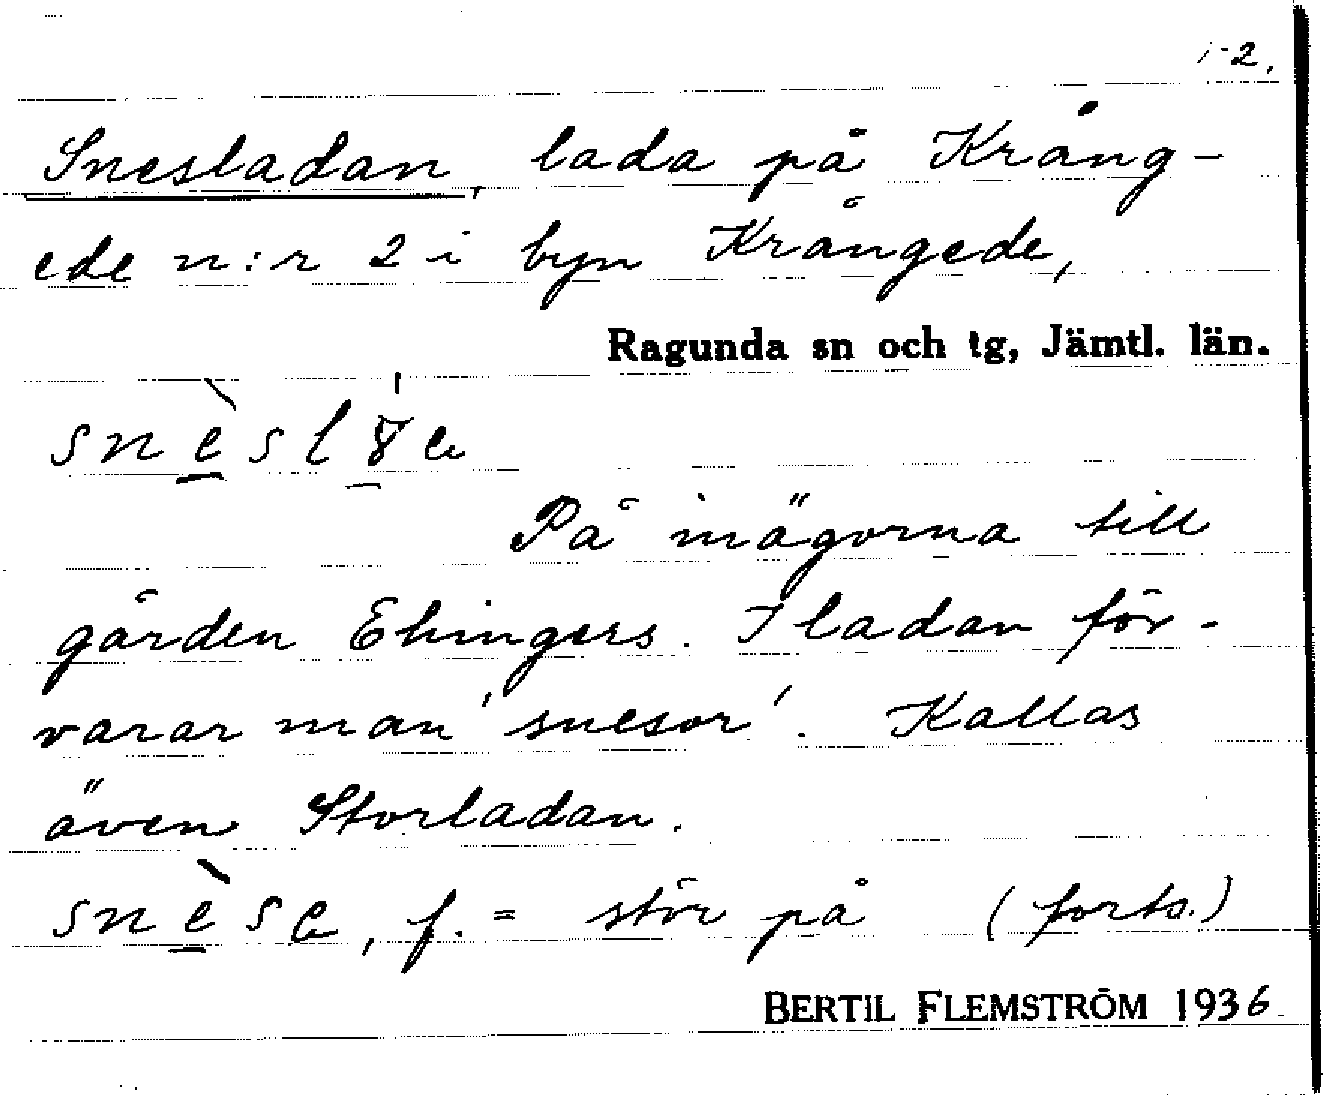 1-2.
Snesladan, lada på Krång-
ede n:r 2 i byn Krångede,
Ragunda sn och tg, Jämtl. län.
På inägorna till
gården Ehingers. I ladan för-
varar man 'snesor'. Kallas
även Storladan.
snèse, f. = stör på (forts.)
BERTIL FLEMSTRÖM 1936